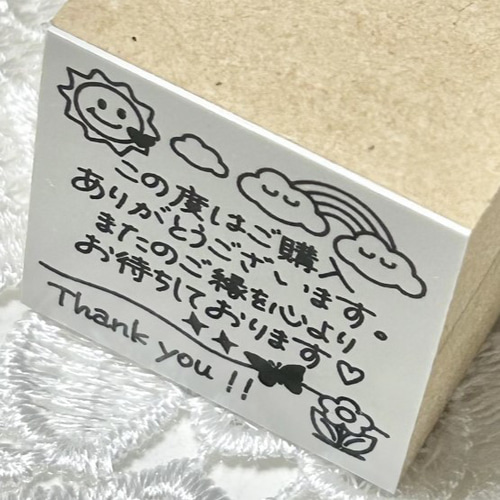 この度はご購入
ありがとうございます。
またのご縁を心より
お待ちしております♡
Thank you !!